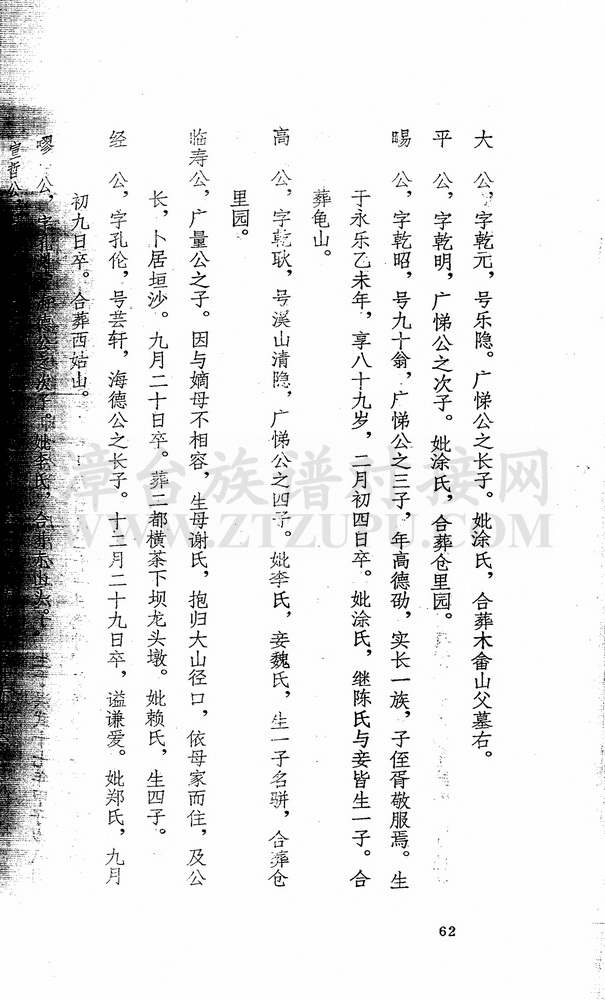 大　公，字乾元，号乐隐。广悌公之长子。妣涂氏，合葬木畲山父墓右。
平　公，字乾明，广悌公之次子。妣涂氏，合葬仓里园。
賜　公，字乾昭，号九十翁，广悌公之三子，年高德劭，实长一族，子侄胥敬服焉。生
于永乐乙未年，享八十九岁，二月初四日卒。妣涂氏，继陈氏与妾皆生一子。合
葬龟山。
高　公，字乾耿，号溪山清隐，广悌公之四子。妣李氏，妾魏氏，生一子名骈，合葬仓
里园。
临寿公，广量公之子。因与嫡母不相容，生母谢氏，抱归大山径口，依母家而住，及公
长，卜居垣沙。九月二十日卒。葬二都横茶下坝龙头墩。妣赖氏，生四子。
经　公，字孔伦，号芸轩，海德公之长子。十二月二十九日卒，谥谦爱。妣郑氏，九月
初九日卒。合葬西姑山。
公，字孔 德公之次子。妣李氏，合葬
宣哲公
62
漳台族谱对接网
WWW.ZTZUPU.COM